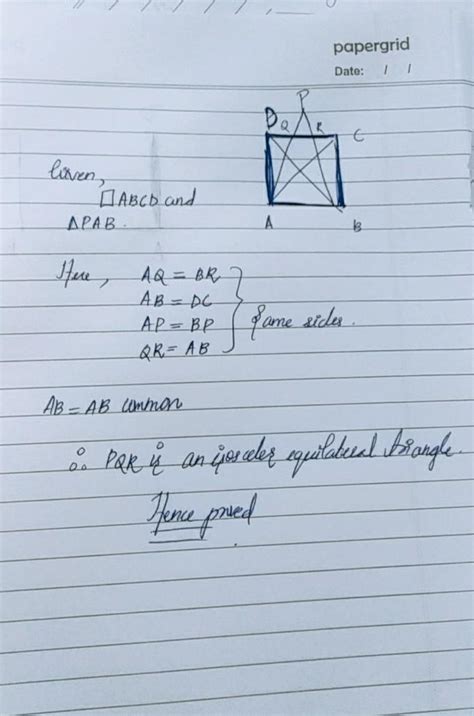 papergrid
Date: / /
P
D Q R C
A B
Given,
□ABCD and
ΔPAB.
Here, AQ = BR
AB = DC
AP = BP
QR = AB
Same sides.
AB = AB common
∴ PQR is an isosceles equilateral triangle.
Hence proved